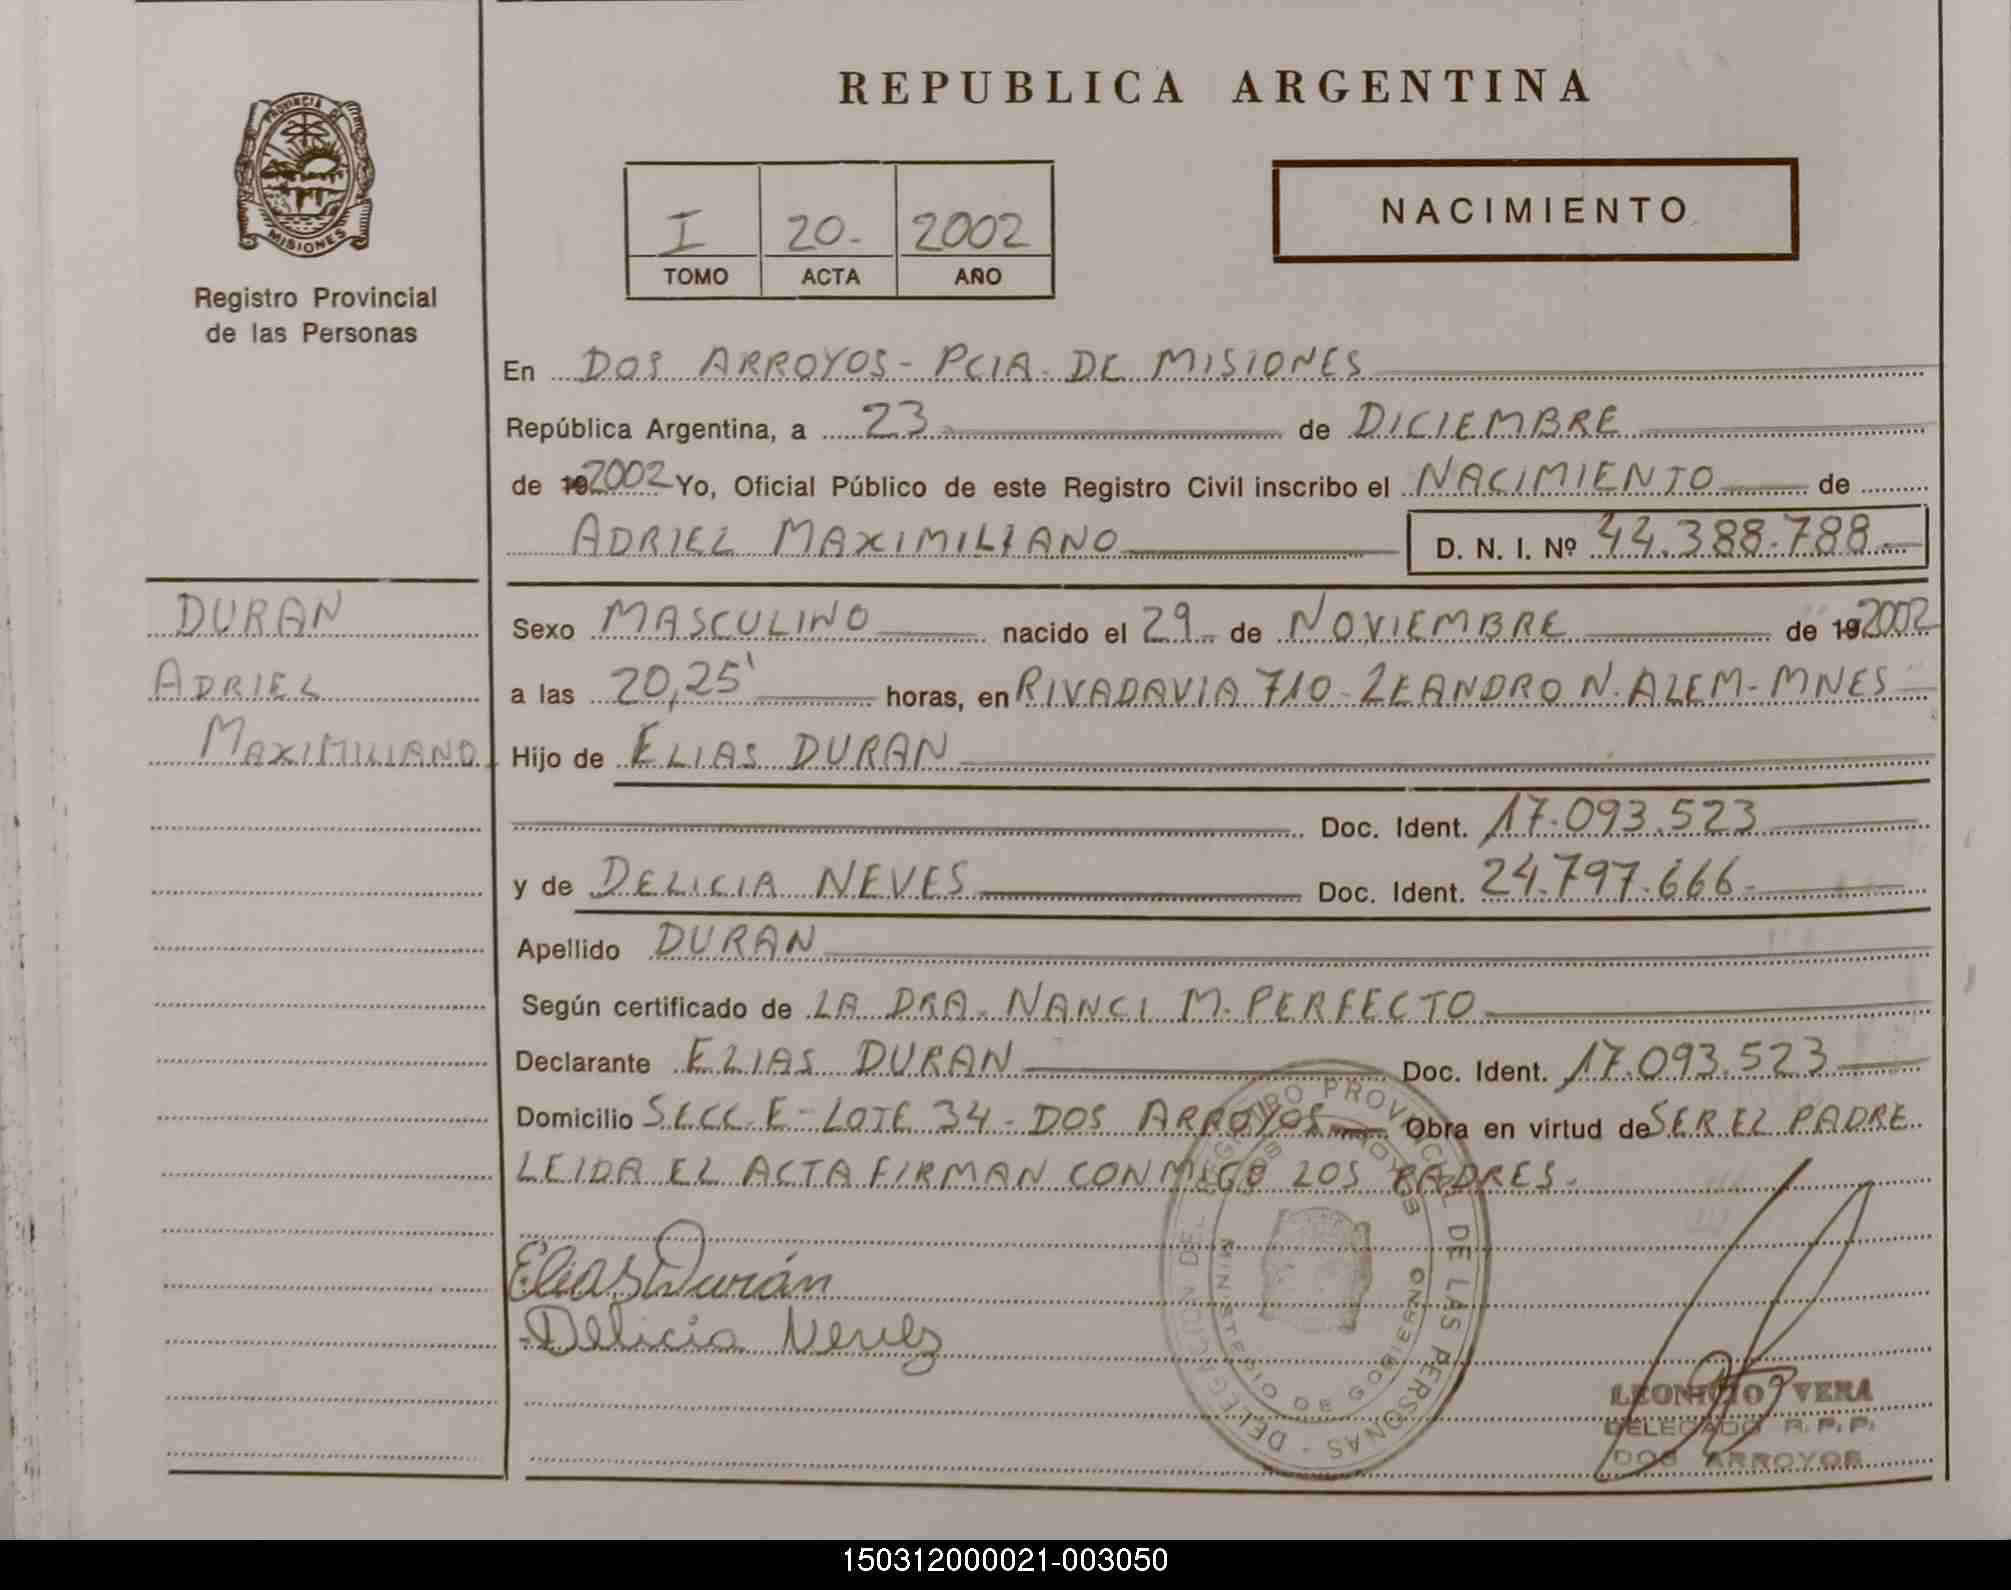 REPUBLICA ARGENTINA
PROVINCIA DE
MISIONES
Registro Provincial
de las Personas
I 20- 2002
TOMO ACTA AÑO
NACIMIENTO
En DOS ARROYOS - PCIA. DE MISIONES
República Argentina, a 23 de DICIEMBRE
de 19 2002 Yo, Oficial Público de este Registro Civil inscribo el NACIMIENTO de
ADRIEL MAXIMILIANO D. N. I. Nº 44.388.788
DURAN
ADRIEL
MAXIMILIANO
Sexo MASCULINO nacido el 29 de NOVIEMBRE de 19 2002
a las 20,25' horas, en RIVADAVIA 710 - LEANDRO N. ALEM - MNES
Hijo de ELIAS DURAN
Doc. Ident. 17.093.523
y de DELICIA NEVES Doc. Ident. 24.797.666
Apellido DURAN
Según certificado de LA DRA. NANCI M. PERFECTO
Declarante ELIAS DURAN Doc. Ident. 17.093.523
Domicilio SECC. E - LOTE 34 - DOS ARROYOS Obra en virtud de SER EL PADRE.
LEIDA EL ACTA FIRMAN CONMIGO LOS PADRES.
Elias Durán
Delicia Neves
DELEGACION DEL REGISTRO PROVINCIAL DE LAS PERSONAS -
DOS ARROYOS
MINISTERIO DE GOBIERNO
VERA
DELEGADO R. P. P.
DOS ARROYOS
150312000021-003050